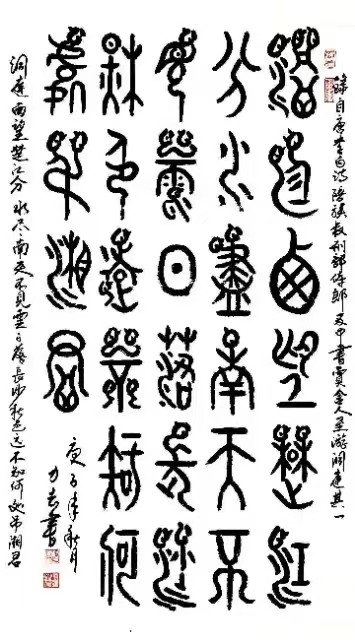 錄自唐李白詩陪族叔刑部侍郎及中書賈舍人至游洞庭其一
洞庭西望楚江
分水盡南天不
見雲日落長沙
秌色遠不知何
處弔湘君
庚子年秋月
書
洞庭西望楚江分水尽南天不見雲日落長沙秋色远不知何處吊湘君